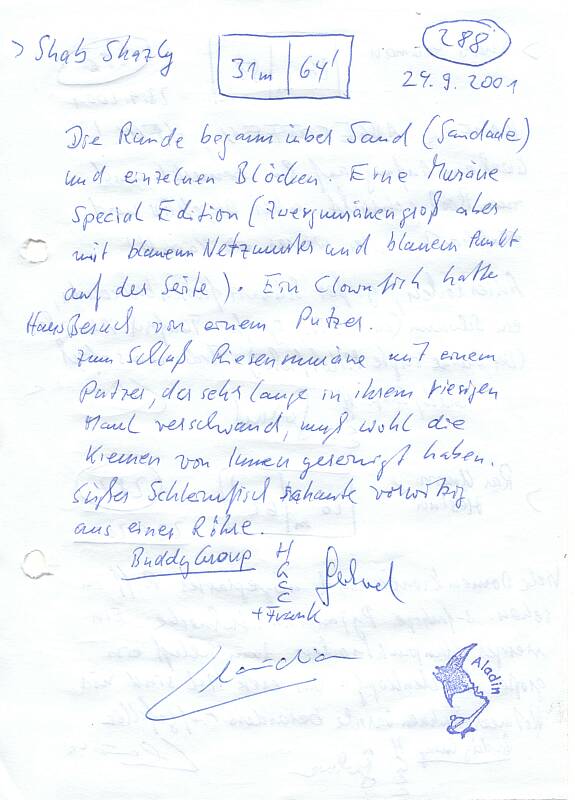 > Shab Shazly
31m | 64'
288
24.9.2001
Die Runde begann über Sand (Sandaale)
und einzelnen Blöcken. Eine Muräne
Special Edition (Zwergmuränengroß aber
mit blauem Netzmuster und blauem Punkt
auf der Seite). Ein Clownfisch hatte
Hausbesuch von einem Putzer.
Zum Schluß Riesenmuräne mit einem
Putzer, der sehr lange in ihrem riesigen
Maul verschwand, muß wohl die
Kiemen von Innen gereinigt haben.
Süßer Schleimfisch schaute vorwitzig
aus einer Röhre.
Buddy Group H
+ Frank
Claudia
Aladin